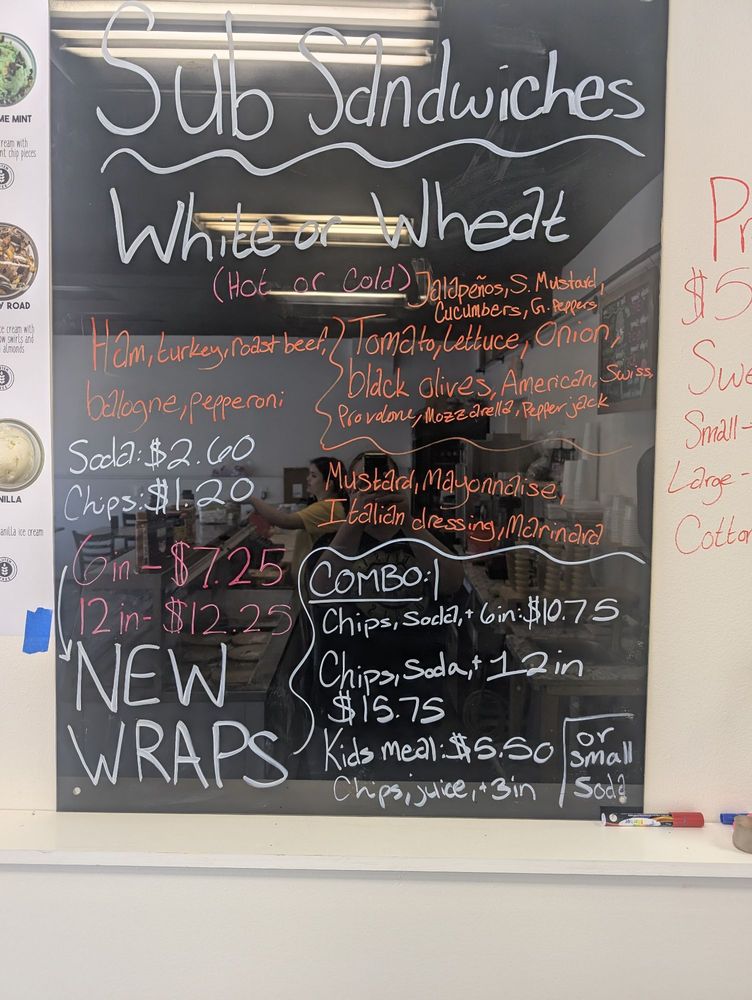 Sub Sandwiches
White or Wheat
(Hot or Cold)
Jalapeños, S. Mustard,
Cucumbers, G. Peppers,
Ham, turkey, roast beef,
balogne, pepperoni
Tomato, Lettuce, Onion,
black olives, American, Swiss,
Provalone, Mozzarella, Pepper jack
Mustard, Mayonnaise,
Italian dressing, Marinara
Soda: $2.60
Chips: $1.20
6 in - $7.25
12 in - $12.25
NEW
WRAPS
COMBO:
Chips, Soda, + 6 in: $10.75
Chips, Soda, + 12 in
$15.75
Kids Meal: $5.50
Chips, juice, + 3in
or
Small
Soda
ME MINT
ream with
nt chip pieces
Y ROAD
ce cream with
ow swirls and
almonds
NILLA
anilla ice cream
Pr
$5
Swe
Small -
Large -
Cotton